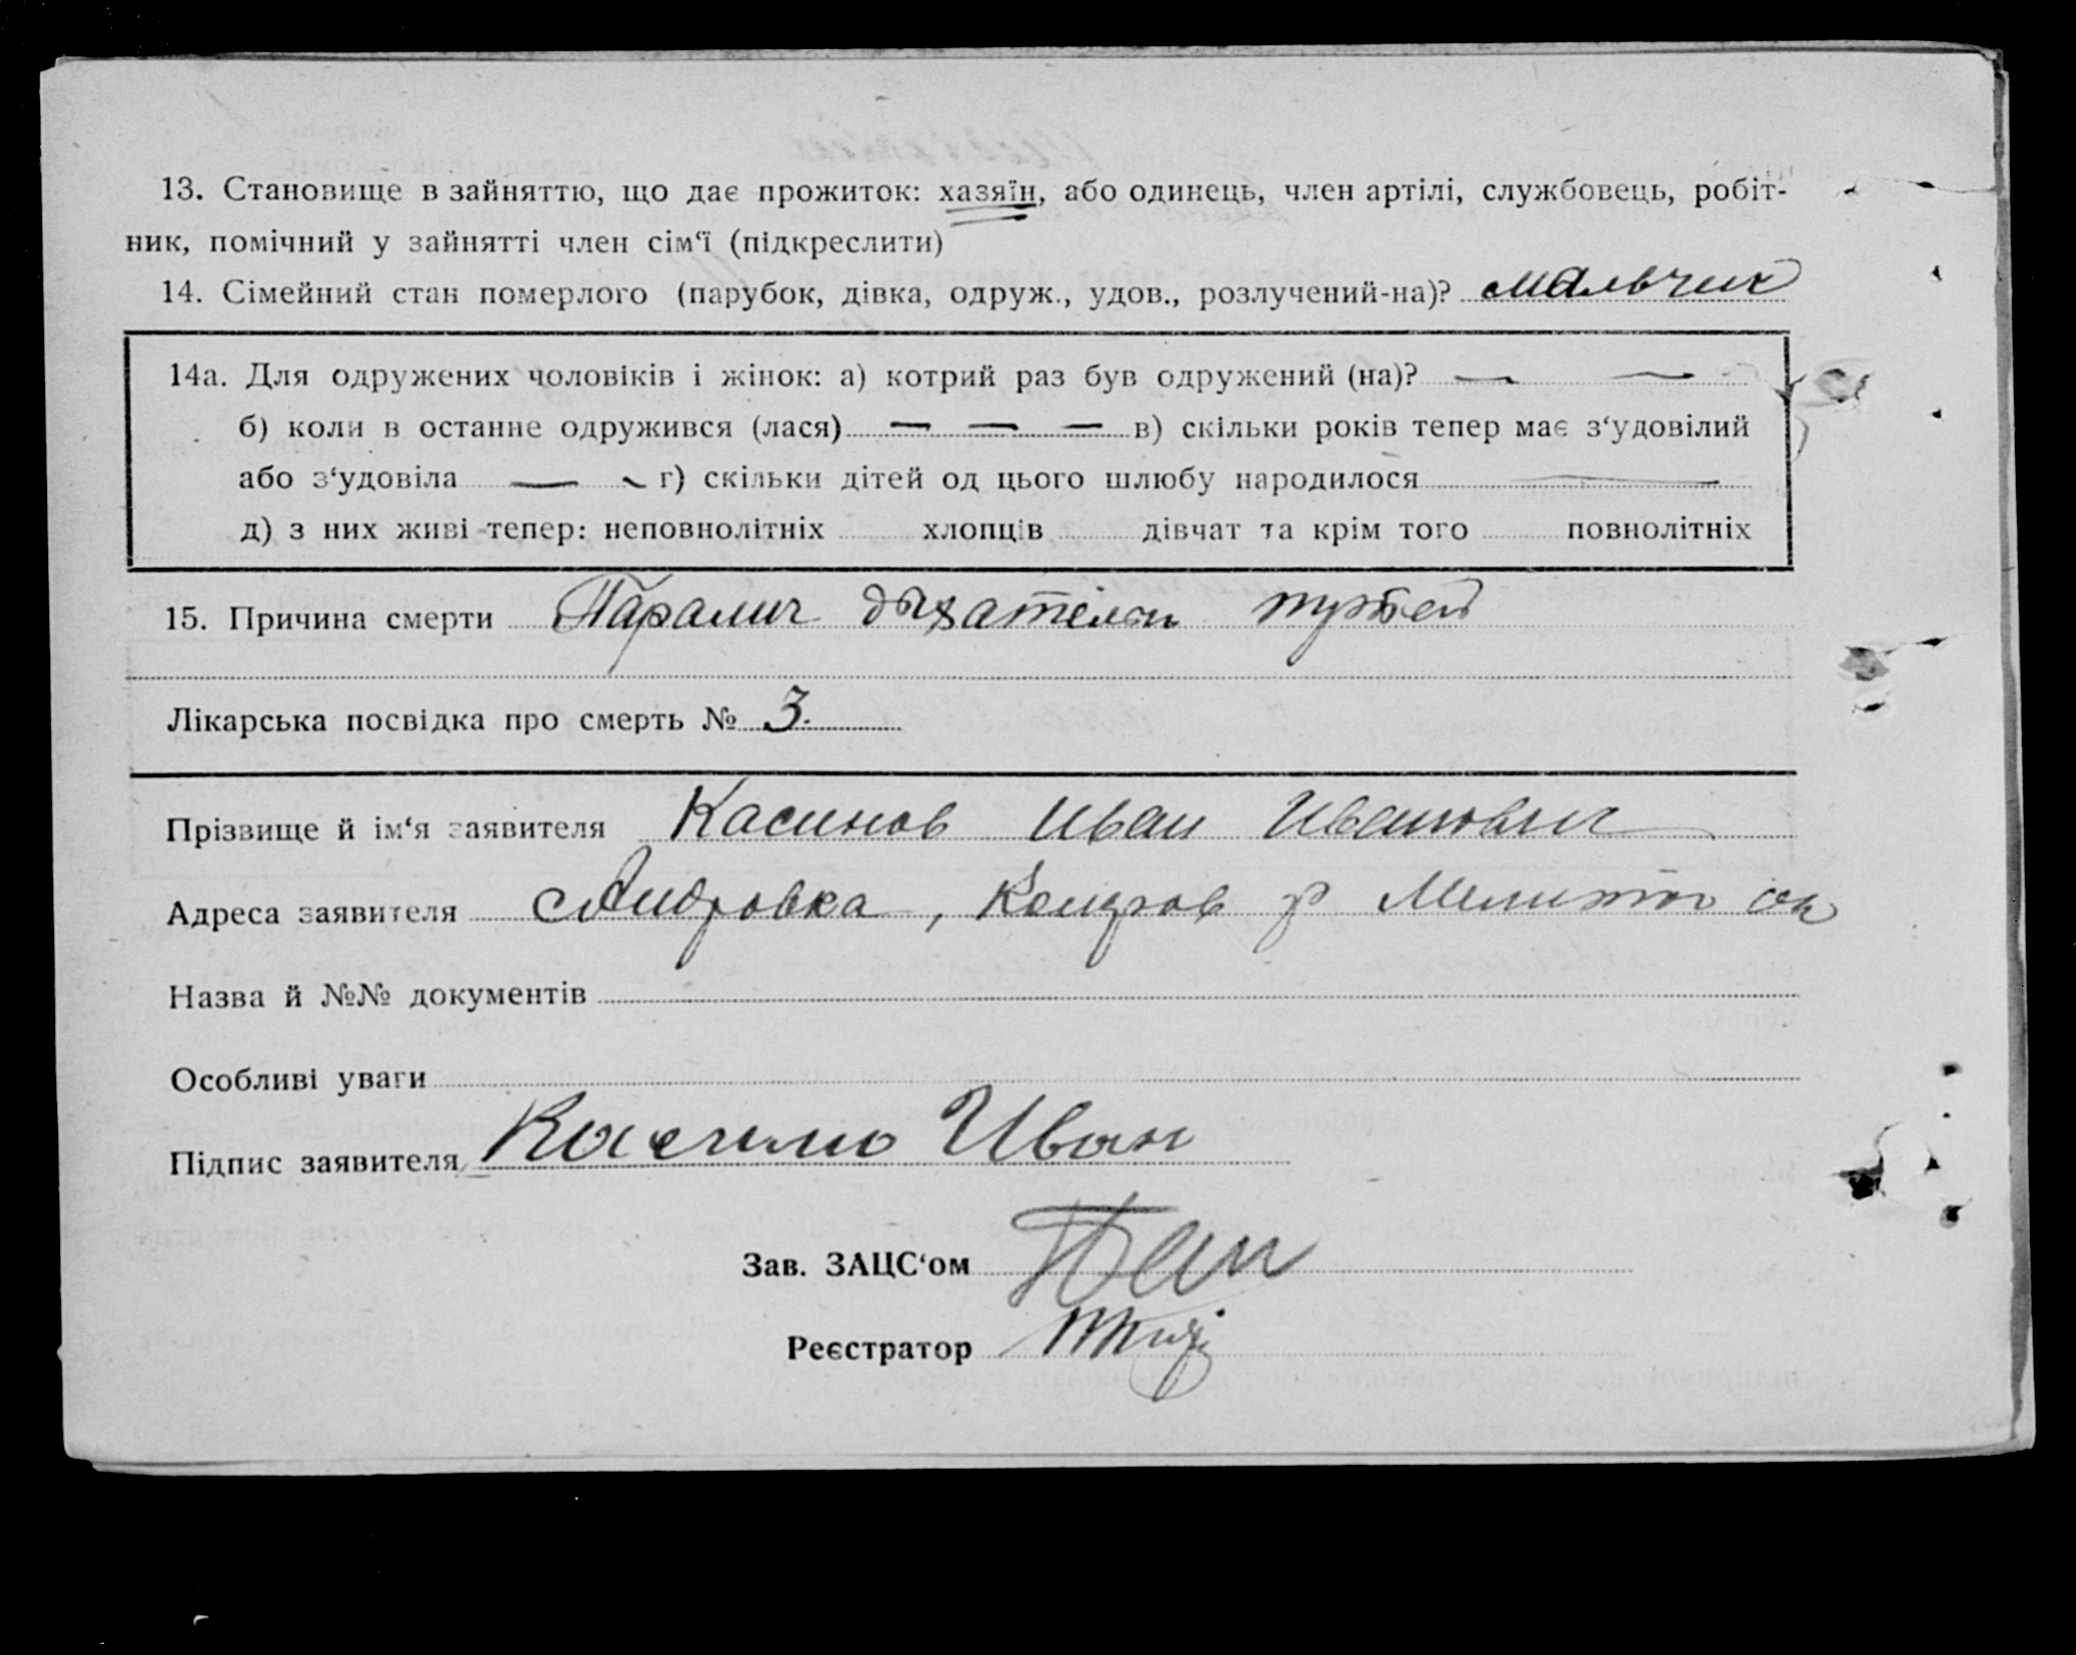 13. Становище в зайняттю, що дає прожиток: хазяїн, або одинець, член артілі, службовець, робіт-
ник, помічний у зайнятті член сім‘ї (підкреслити)
14. Сімейний стан померлого (парубок, дівка, одруж., удов., розлучений-на)? мальчик
14а. Для одружених чоловіків і жінок: а) котрий раз був одружений (на)? — —
б) коли в останне одружився (лася) — — — в) скільки років тепер має з‘удовілий
або з‘удовіла — — г) скільки дітей од цього шлюбу народилося —
д) з них живі тепер: неповнолітніх хлопців дівчат та крім того повнолітніх
15. Причина смерти Паралич дыхателн путей
Лікарська посвідка про смерть № 3.
Прізвище й ім‘я заявителя Касинов Иван Иванович
Адреса заявителя с Андровка, р Мелитоп ок
Назва й №№ документів
Особливі уваги
Підпис заявителя Иван
Зав. ЗАЦС‘ом
Реєстратор